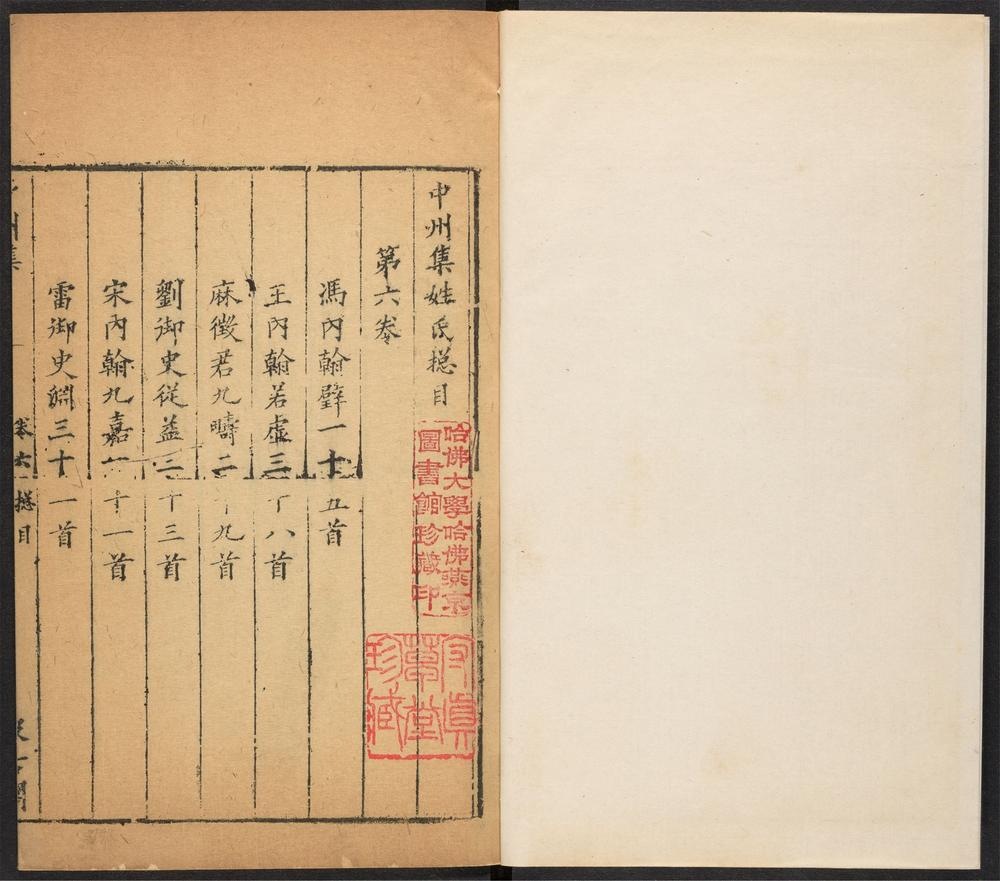 中州集姓氏揔目
第六卷
馮內翰璧一十五首
王內翰若虛三十八首
麻徵君九疇二十九首
劉御史從益三十三首
宋內翰九嘉一十一首
雷御史淵三十一首
州集
卷六 揔目
汲古閣
哈佛大學哈佛燕京
圖書館珍藏印
草堂
珍藏